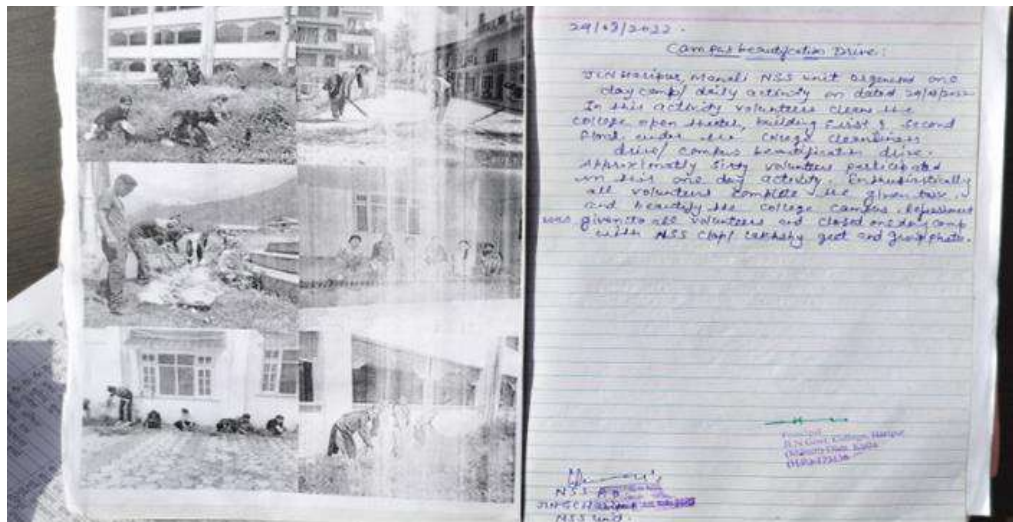 29/09/2022.
Campus beautification Drive:
JLN Haripur, Manali NSS unit organized one
day camp/ daily activity on dated 29/09/2022
In this activity volunteers clean the
college open theater, building First & Second
floor under the college cleanliness
drive/ campus beautification drive.
Approximatly sixty volunteers participated
in this one day activity. Enthusiastically
all volunteers complete the given task
and beautify the college campus. Refreshment
was given to all volunteers and closed one day camp
with NSS clap/ lakshay geet and group photo.
Principal
JLN Govt. College, Haripur
Distt. Kullu
NSS P.O
JLNGC Haripur
NSS Unit.